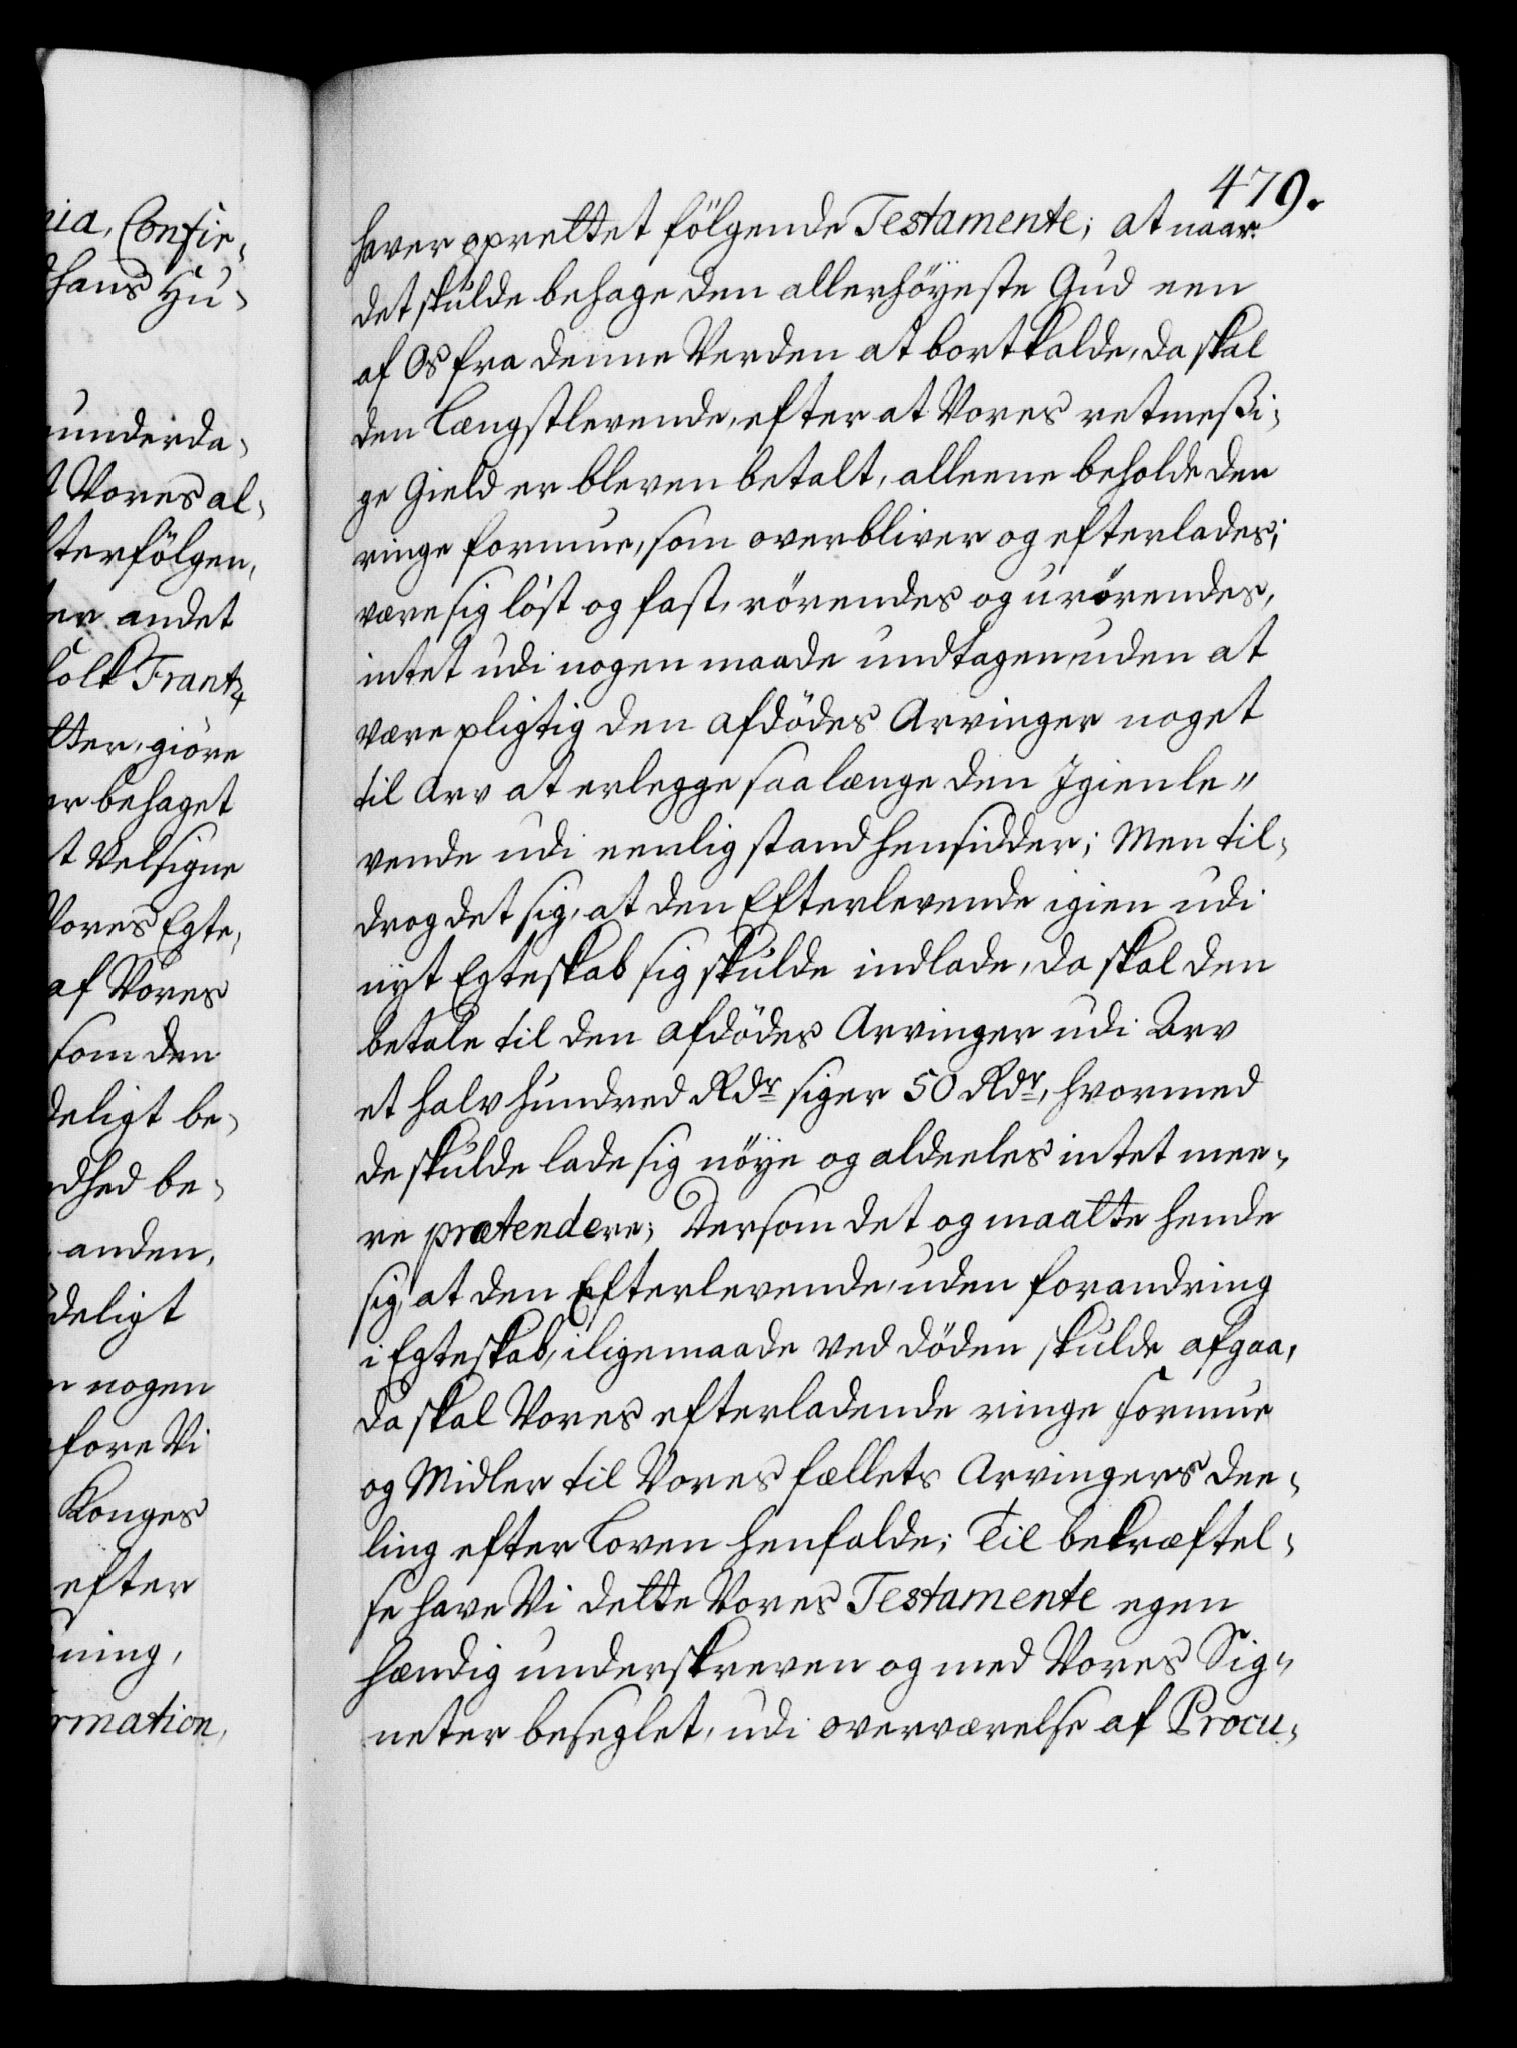 nia, Confir-
hans Hu-
underda-
t Vores al-
fterfölgen,
er andet
folk Frantz
tter, giöre
er behaget
t Velsigne
Vores Egte,
af Vores
som den
deligt be-
dhed be-
anden,
deligt
n nogen
fore Vi
Konges
efter
ning,
rmation,
479.
haver oprettet fölgende Testamente; at naar
det skulde behage den allerhöyeste Gud een
af Os fra denne Verden at bortkalde, da skal
den Længstlevende, efter at Vores retmeßi-
ge Gield er bleven betalt, alleene beholde den
ringe formue, som overbliver og efterlades,
være sig löst og fast, rörendes og urörendes,
intet udi nogen maade undtagen, uden at
være pligtig den afdödes Arvinger noget
til Arv at erlegge saalænge den Igienle-
vende udi eenlig stand hensidder; Men til-
drog det sig, at den Efterlevende igien udi
nyt Egteskab sig skulde indlade, da skal den
betale til den afdödes Arvinger udi Arv
et halv hundred Rdr siger 50 Rdr, hvormed
de skulde lade sig nöye og aldeeles intet mee-
re prætendere; Dersom det og maatte hende
sig, at den Efterlevende, uden forandring
i Egteskab, i ligemaade ved döden skulde afgaa,
da skal Vores efterladende ringe formue
og Midler til Vores fællets Arvingers dee-
ling efter Loven henfalde; Til bekræftel-
se have Vi dette Vores Testamente egen
hændig underskreven og med Vores Sig-
neter beseglet, udi overværelse af Procu-